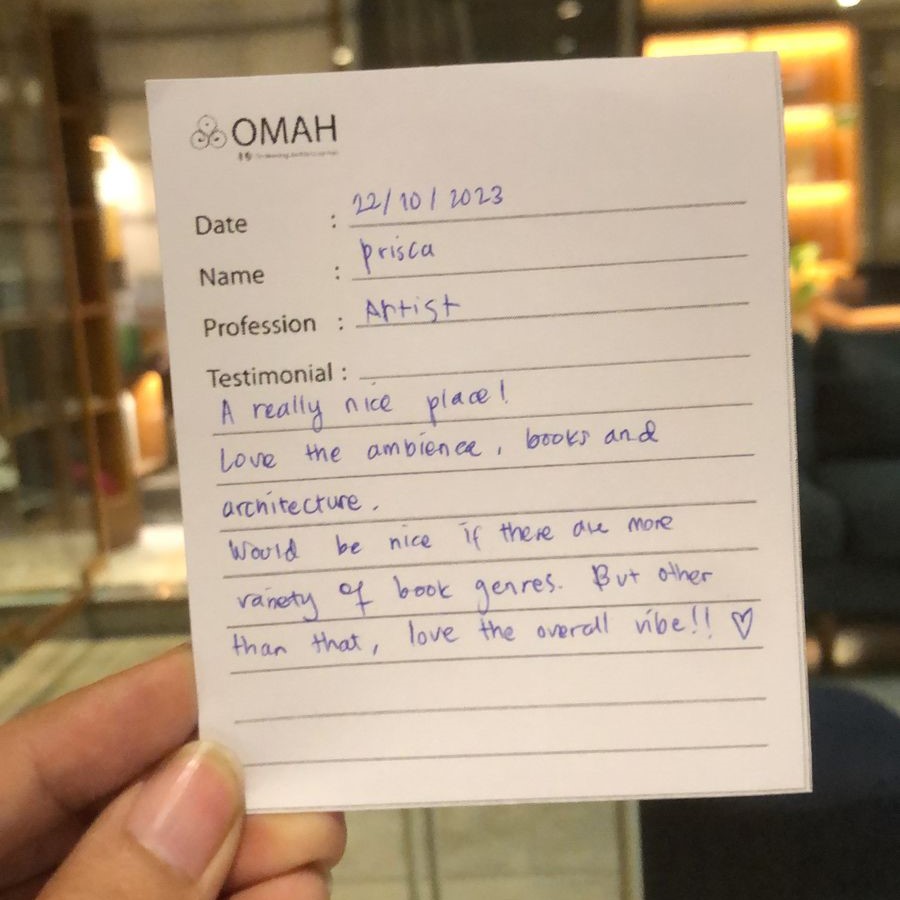 OMAH
Date : 22/10/2023
Name : prisca
Profession : Artist
Testimonial :
A really nice place!
Love the ambience, books and
architecture.
Would be nice if there are more
variety of book genres. But other
than that, love the overall vibe!! ♡